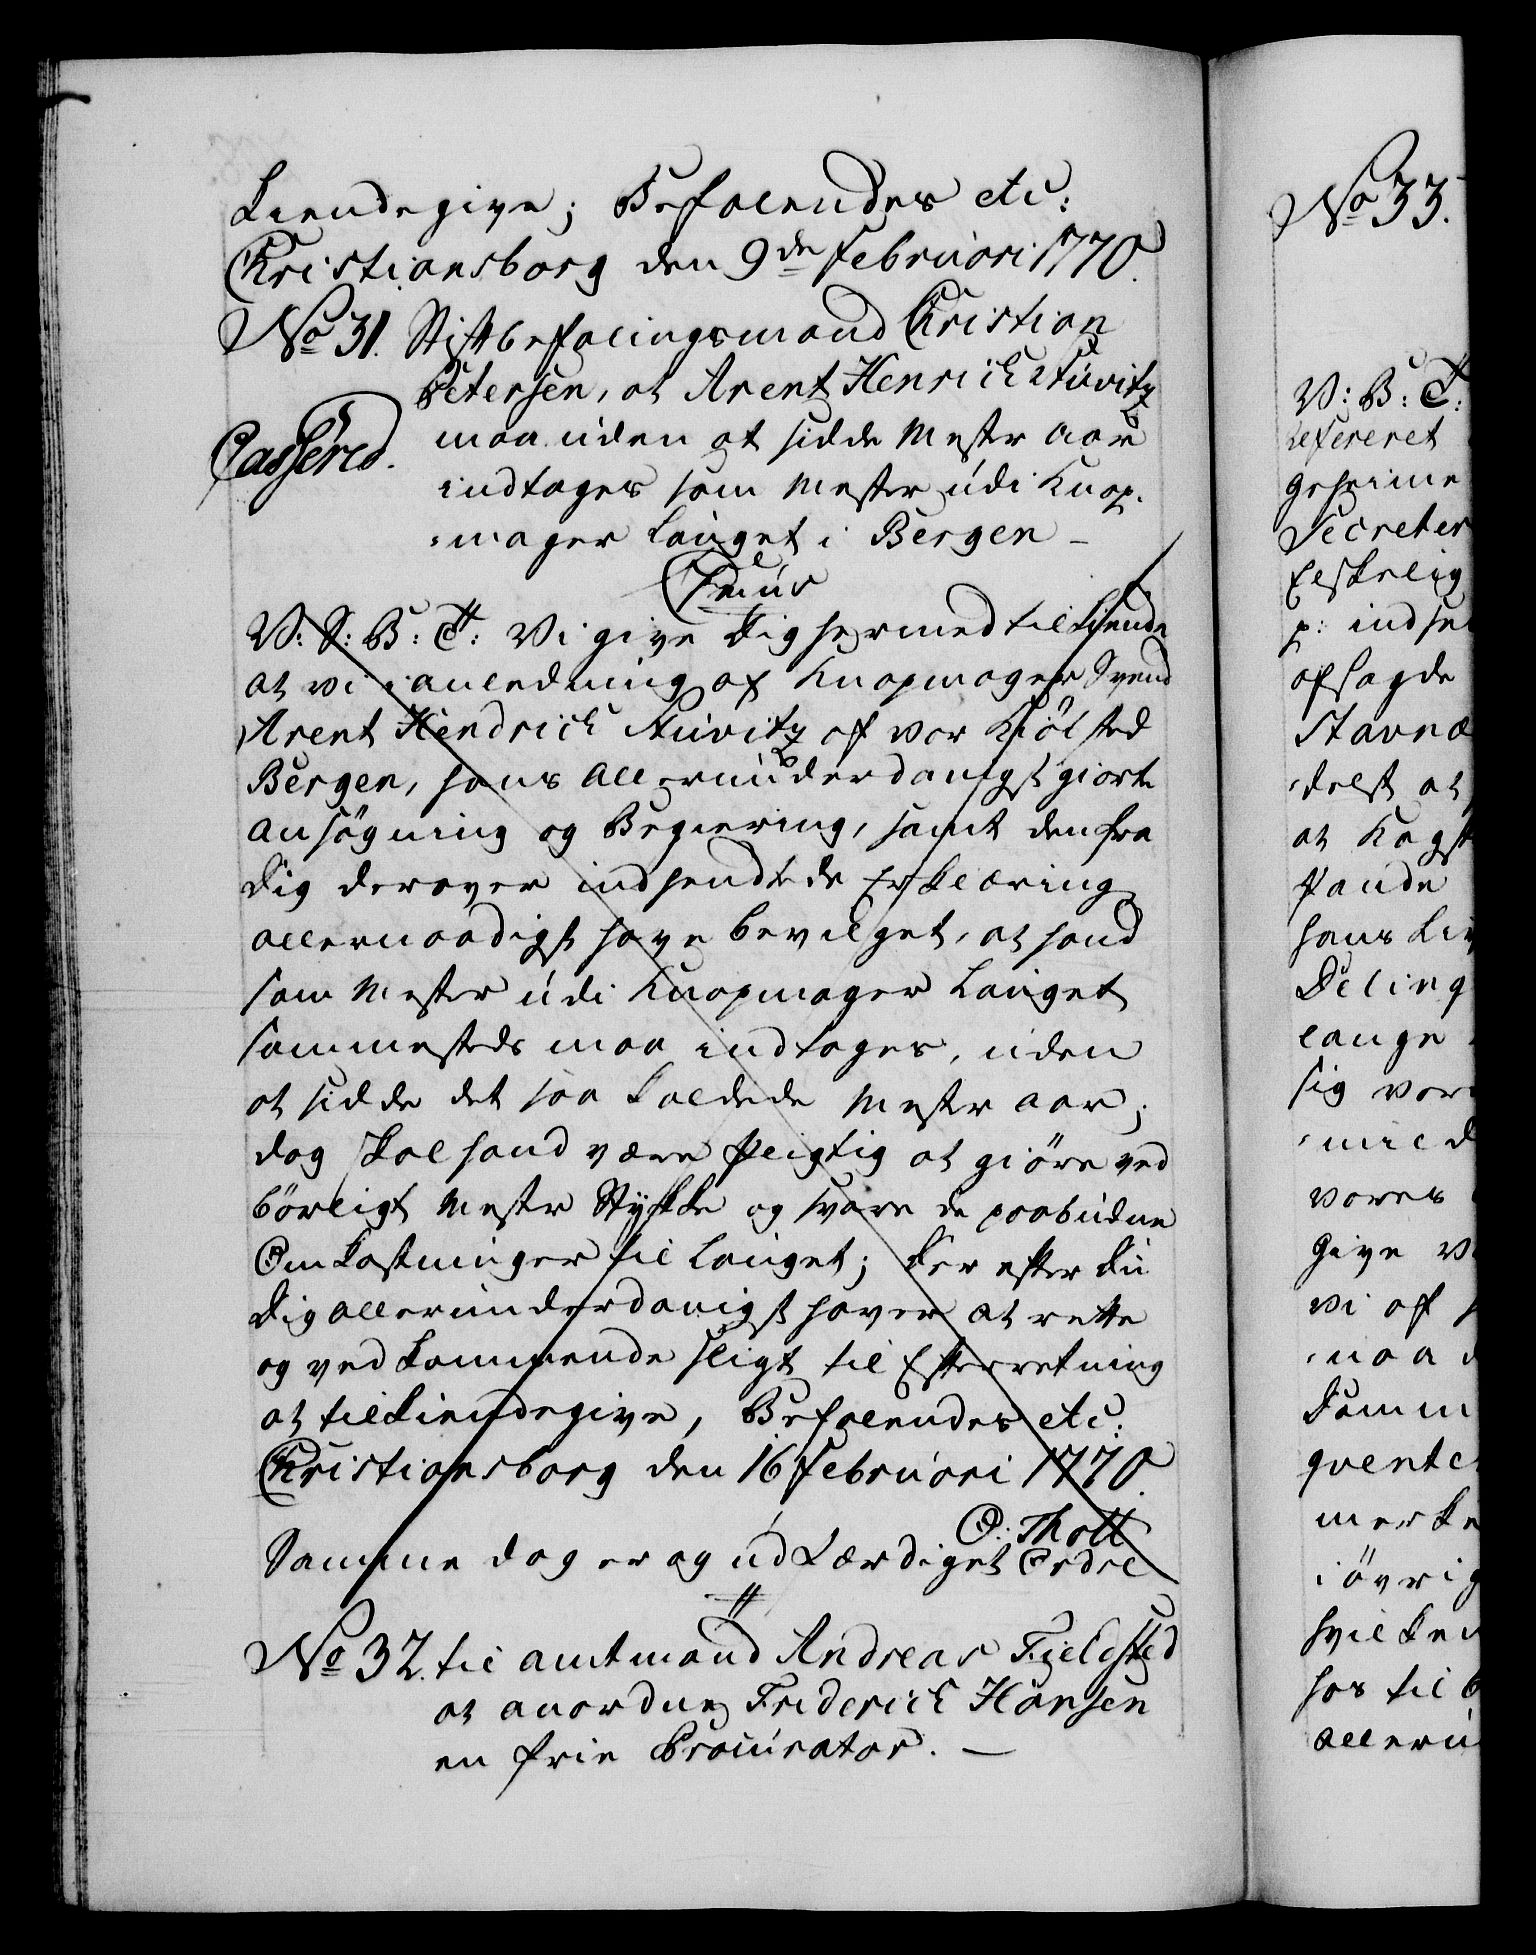 kiendegive; Befalendes etc:
Christiansborg den 9de Februari 1770.
No 31. Stiftbefalingsmand Christian
Petersen, at Arent Henrich Stüvitz
maa uden at sidde Mester Aar
indtages som Mester udi Knap-
Casseres.
-mager Lauget i Bergen –
C. 7mus
V: S: B: T: Vi give Dig hermed tilkiende
at vi i anledning af Knapmager Svend
Arent Hendrich Stüvitz af vor Kiöbsted
Bergen, hans allerunderdanigst giorte
ansögning og Begiering, samt den fra
Dig derover indsendte Erklæring
allernaadigst have bevilget, at hand
som Mester udi Knapmager Lauget
sammesteds maa indtages, uden
at sidde det saa kaldede Mester Aar;
dog skal hand være pligtig at giöre ved
börligt Mester Stykke og svare de paabudne
Omkostninger til Lauget; Derefter Du
Dig allerunderdanigst haver at rette
og vedkommende sligt til Efterretning
at tilkiendegive, Befalendes etc:
Christiansborg den 16 Februari 1770.
O: Thott
Samme dag er og udfærdiget Ordre
No 32. til amtmand Andreas Fieldsted
at anordne Friderich Hansen
en frie Procurator. –
No 33.
V: B: T:
refereret
geheime
Secreter
Elskelig
p: indse
afsagde
Stavnæ
-delst at
at Kagst
Pande
hans Liv
Deling
lange
sig vor
-mild
vores
Give V
vi af
-naa
Domm
qvente
merke
i övrig
hvilken
hos til b
alleru